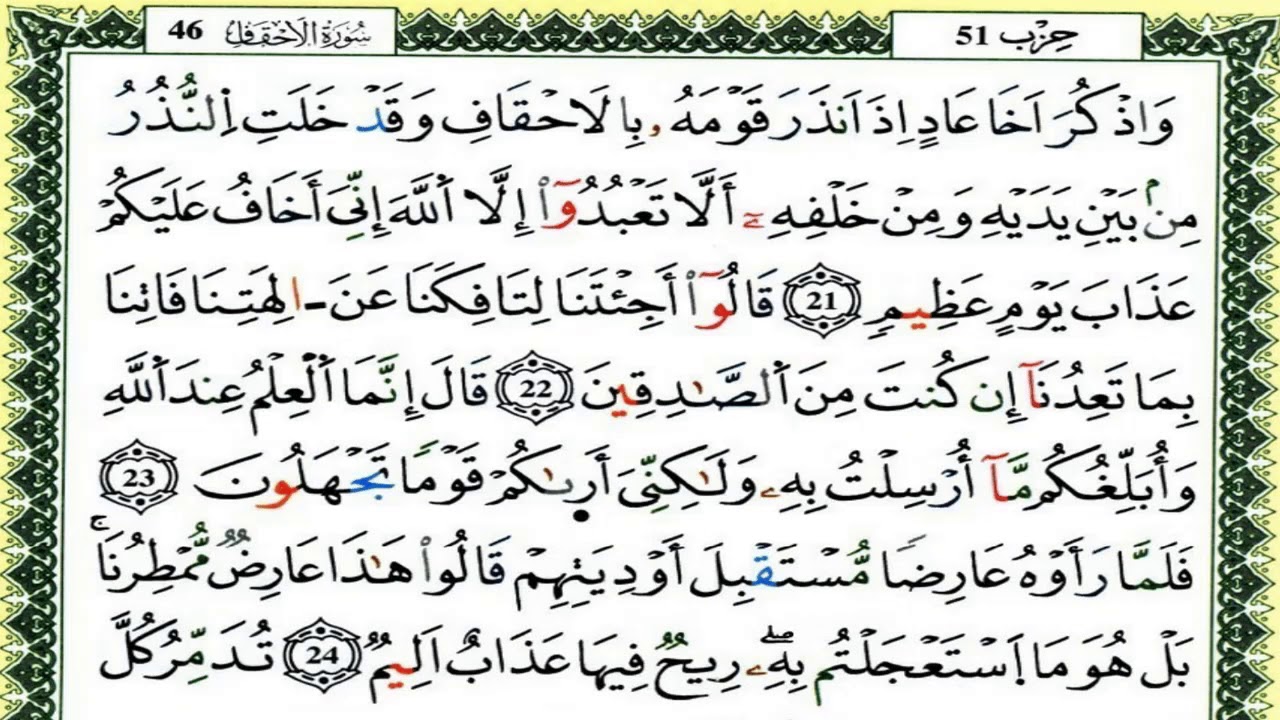 سُورَةُ الاَحْقَافِ 46
حِزْب 51
وَاذْكُرَ اَخَا عَادٍ اِذَ اَنذَرَ قَوْمَهُۥ بِالَاحْقَافِ وَقَدْ خَلَتِ اِ۬لنُّذُرُ
مِنۢ بَيْنِ يَدَيْهِ وَمِنْ خَلْفِهِۦٓ أَلَّا تَعْبُدُوٓاْ إِلَّا اَ۬للَّهَ إِنِّيَ أَخَافُ عَلَيْكُمْ
عَذَابَ يَوْمٍ عَظِيمٍ 21 قَالُوٓاْ أَجِئْتَنَا لِتَافِكَنَا عَنَ ـ اٰلِهَتِنَا فَاتِنَا
بِمَا تَعِدُنَآ إِن كُنتَ مِنَ اَ۬لصَّٰدِقِينَ 22 قَالَ إِنَّمَا اَ۬لْعِلْمُ عِندَ اَ۬للَّهِ
وَأُبَلِّغُكُم مَّآ أُرْسِلْتُ بِهِۦ وَلَٰكِنِّيَ أَر۪ىٰكُمْ قَوْمًا تَجْهَلُونَ 23
فَلَمَّا رَأَوْهُ عَارِضًا مُّسْتَقْبِلَ أَوْدِيَتِهِمْ قَالُواْ هَٰذَا عَارِضٌ مُّمْطِرُنَاۚ
بَلْ هُوَ مَا اَ۪سْتَعْجَلْتُم بِهِۦۖ رِيحٌ فِيهَا عَذَابٌ اَلِيمٌ 24 تُدَمِّرُ كُلَّ